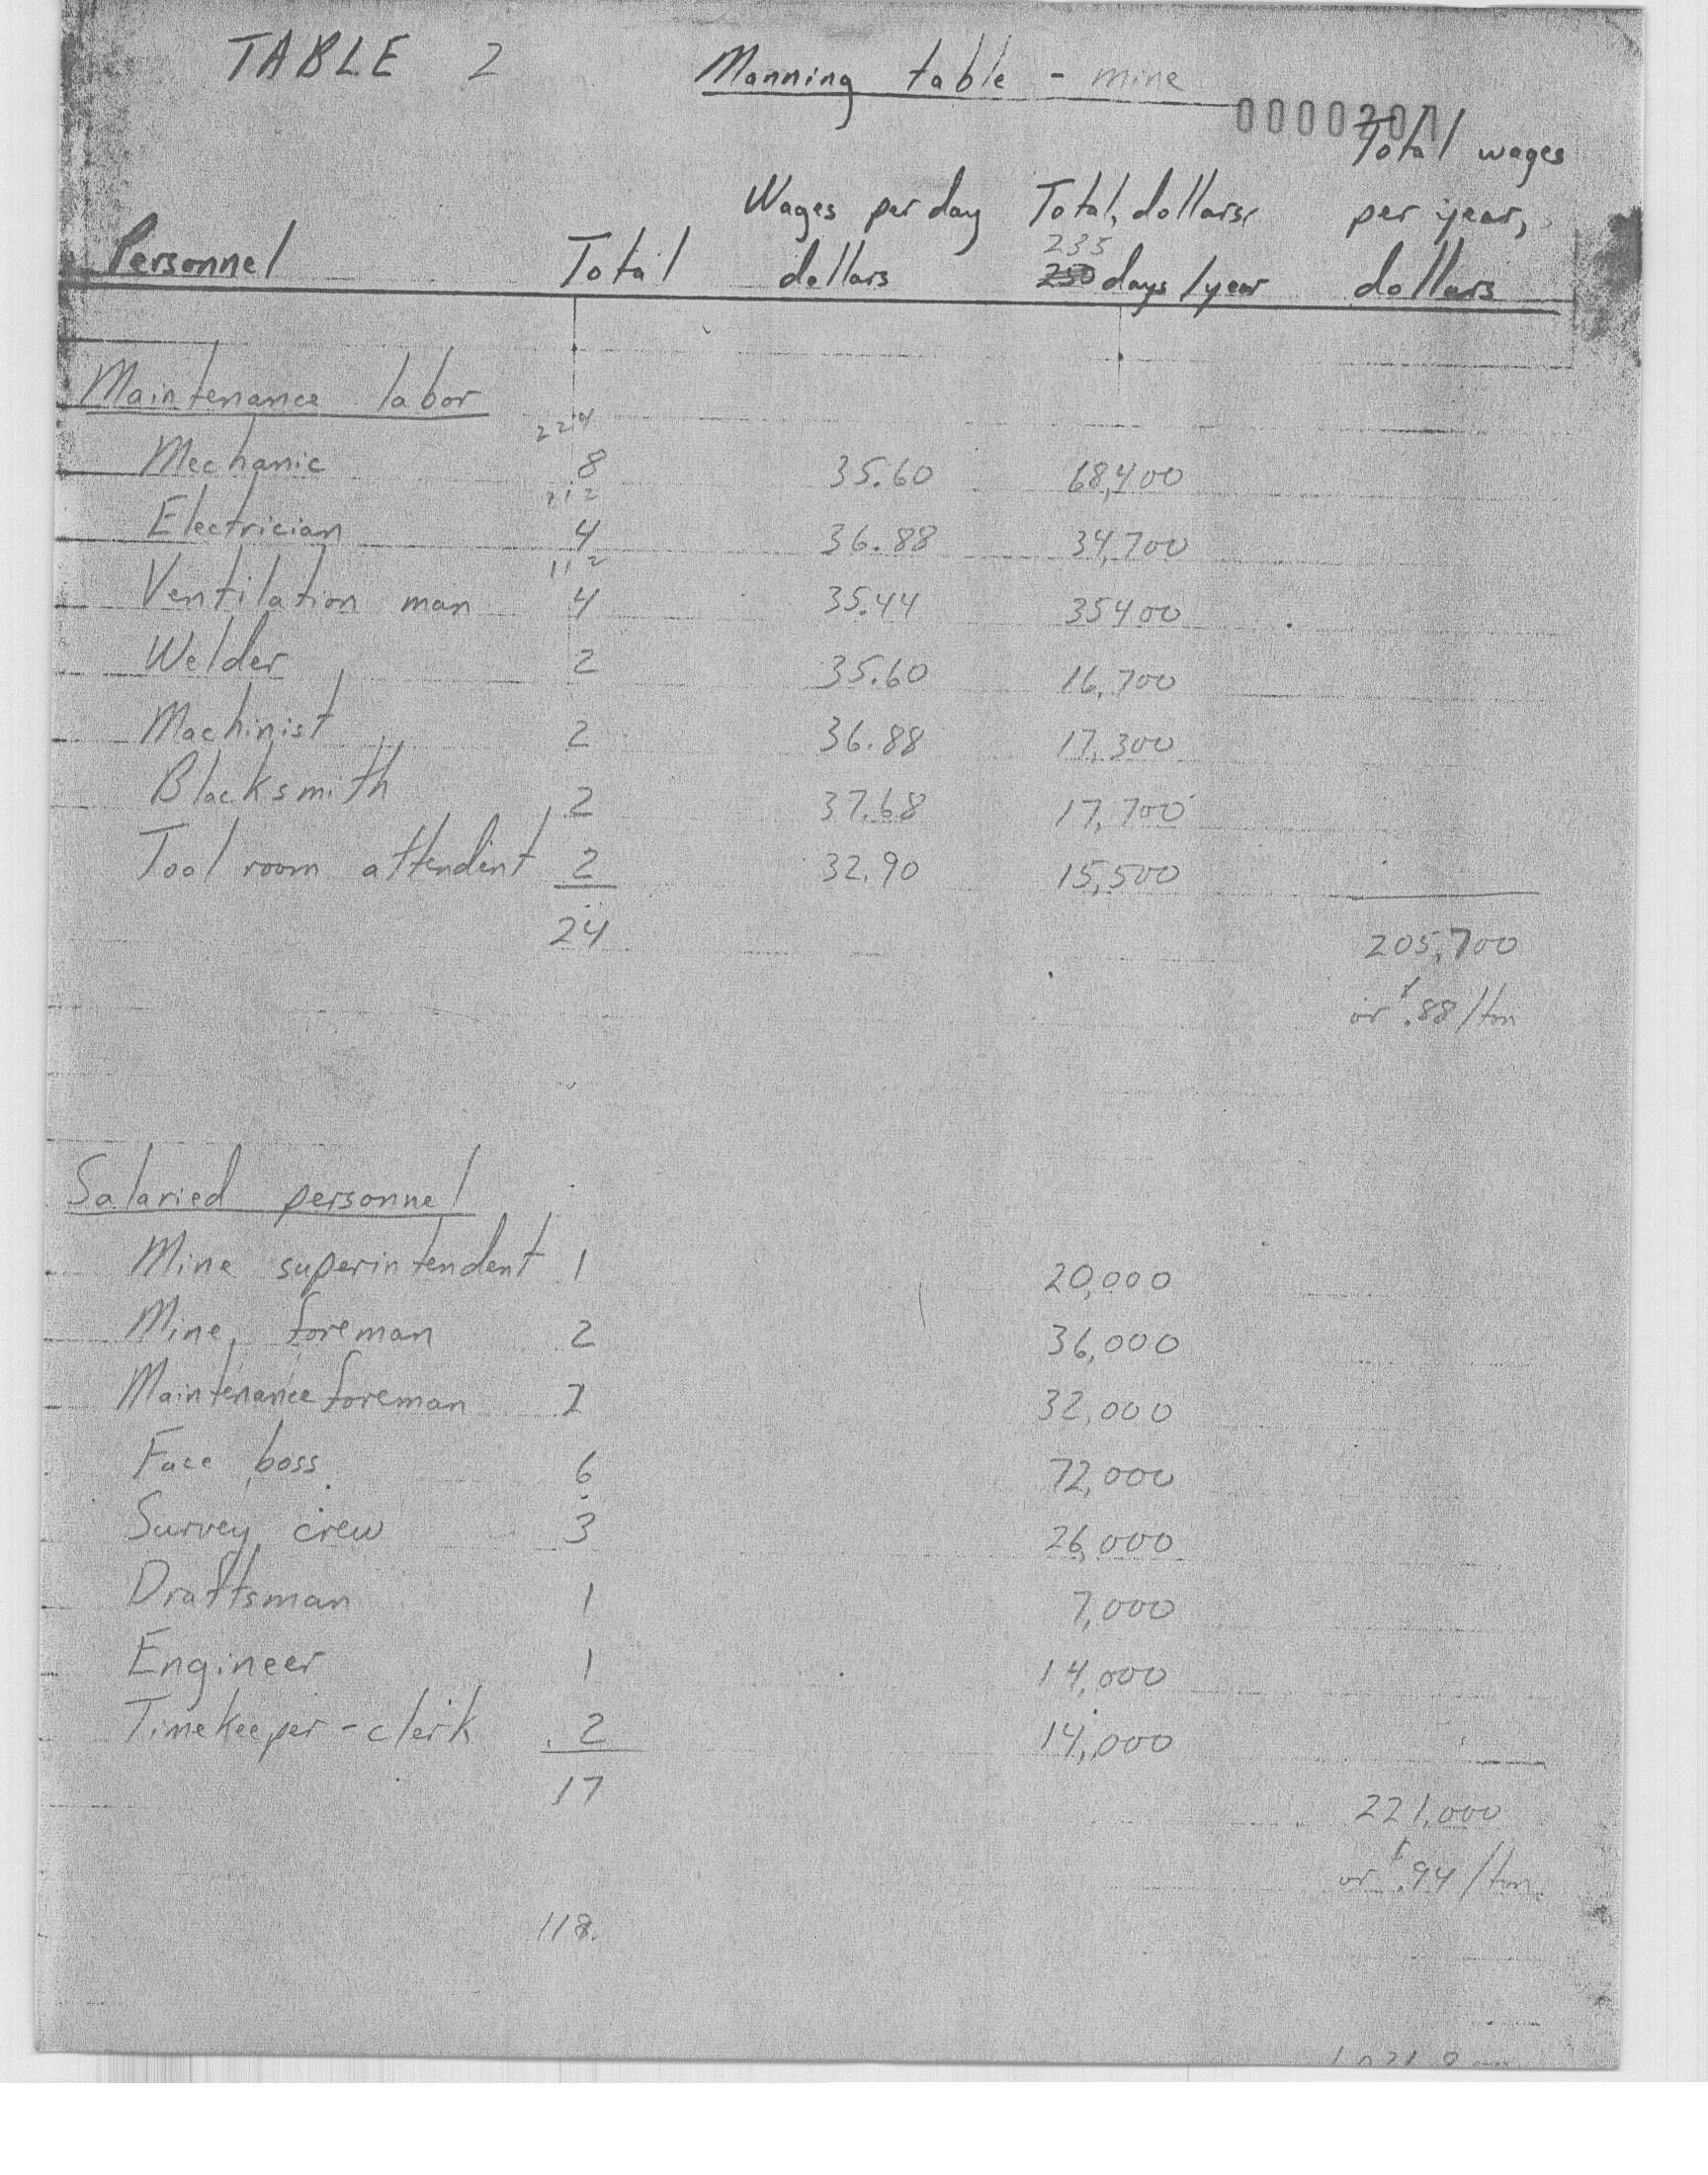 TABLE 2 Manning table - mine
0000207
Total wages
Wages per day Total, dollars, per year,
235
Personnel Total dollars 250 days/year dollars
Maintenance labor
224
Mechanic 8 35.60 68,400
112
Electrician 4 36.88 34,700
112
Ventilation man 4 35.44 35400
Welder 2 35.60 16,700
Machinist 2 36.88 17,300
Blacksmith 2 37.68 17,700
Tool room attendent 2 32.90 15,500
24 205,700
or $.88/ton
Salaried personnel
Mine superintendent 1 20,000
Mine foreman 2 36,000
Maintenance foreman 2 32,000
Face boss 6 72,000
Survey crew 3 26,000
Draftsman 1 7,000
Engineer 1 14,000
Timekeeper-clerk 2 14,000
17 221,000
or $.94/ton
118